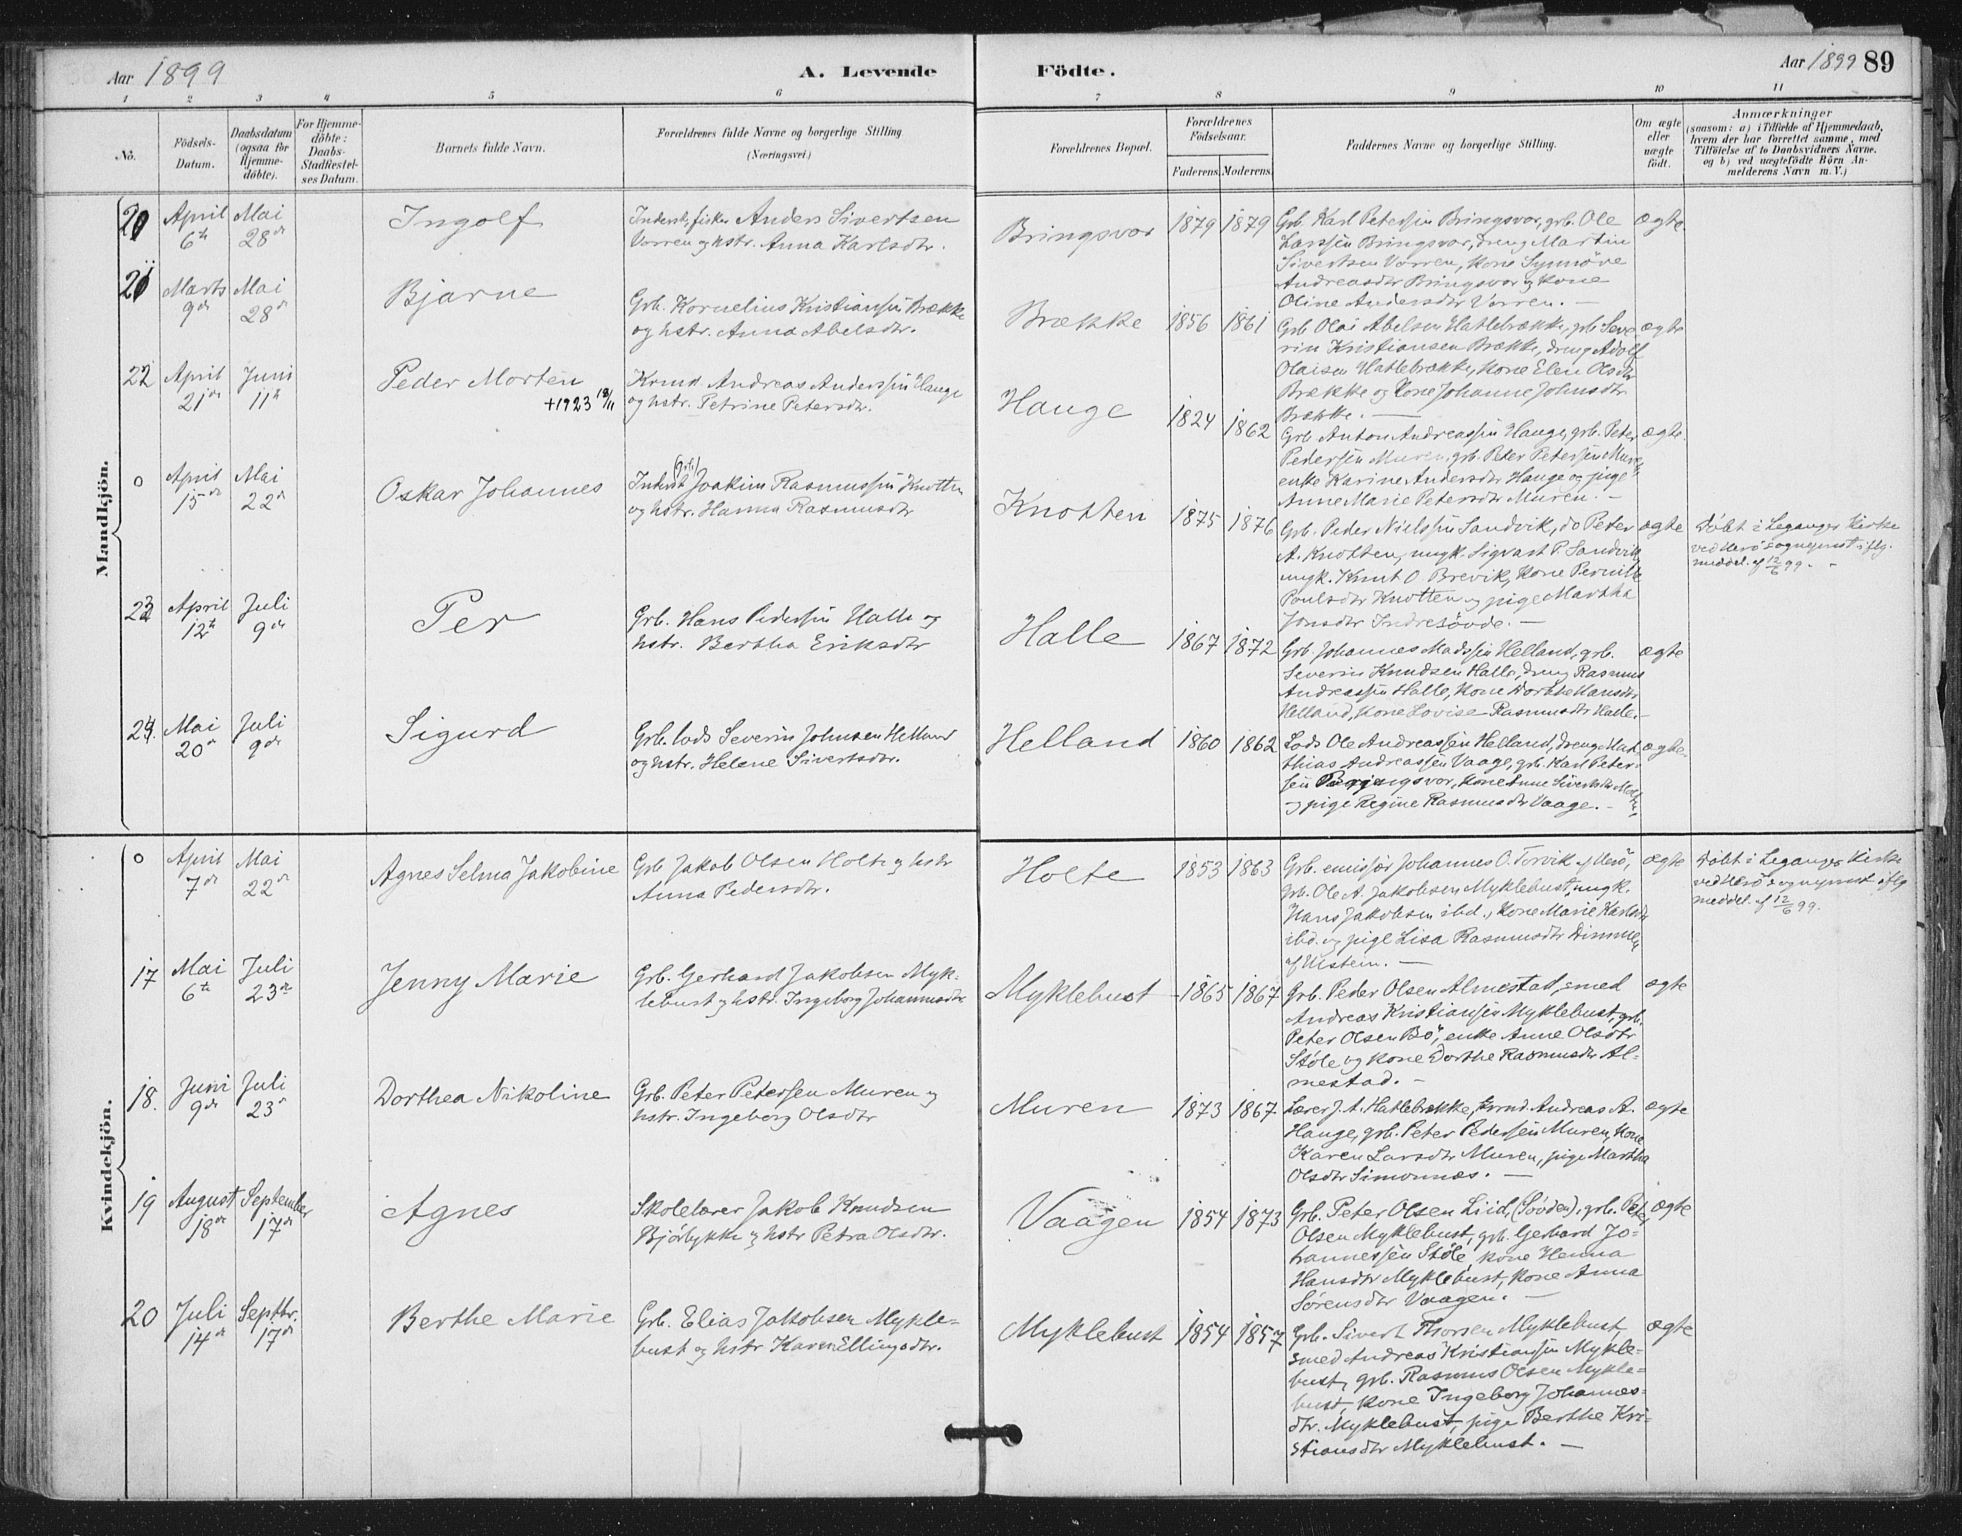 Aar 1899
A. Levende
Födte.
Aar 1899 89
1 2 3 4 5 6 7 8 9 10 11
No.
Födsels-
Datum.
Daabsdatum
(ogsaa for
Hjemme-
döbte).
For Hjemme-
döbte:
Daabs-
Stadfæstel-
ses Datum.
Barnets fulde Navn.
Forældrenes fulde Navne og borgerlige Stilling
(Næringsvei.)
Forældrenes Bopæl.
Forældrenes
Födselsaar.
Faderens. Moderens.
Faddernes Navne og borgerlige Stilling.
Om ægte
eller
uægte
födt.
Anmærkninger
(saasom: a) i Tilfælde af Hjemmedaab,
hvem der har forrettet samme, med
Tilföielse af to Daabsvidners Navne.
og b) ved uægtefödte Börn An-
melderens Navn m. V.)
Mandkjön.
20 April 6te Mai 28de
Ingolf
Inderst, fisker Anders Sivertsen
Vorren og hstr. Anna Karlsdtr.
Bringsvor 1879 1879
Grb. Karl Peterssen Bringsvor, grb. Ole
Larssen Bringsvor, dreng Martin
Sivertsen Vorren, kone Synnöve
Andreasdtr Bringsvor og kone
Oline Andersdtr Vorren. —
ægte
21 Marts 9de Mai 28de
Bjarne
Grb. Kornelius Kristiansen Brække
og hstr. Anna Abelsdtr.
Brække 1856 1861
Grb Olai Abelsen Hatlebrække, grb Seve-
rin Kristiansen Brække, dreng Adolf
Olaisen Hatlebrække, kone Elen Olsdtr
Brække og kone Johanne Johnsdtr
Brække. —
ægte
22 April 21de Juni 11te
Peder Morten
+1923 18/11
Krmd. Andreas Anderssen Hauge
og hstr. Petrine Petersdtr.
Hauge 1824 1862
Grb Anton Andreassen Hauge, grb. Peter
Pedersen Muren, grb. Peter Petersen Muren,
enke Karine Andersdtr Hauge og pige
Anne Marie Petersdtr Muren. —
ægte
0 April 15de Mai 22de
Oskar Johannes
(grb)
Inderst Joakim Rasmussen Knotten
og hstr. Hanna Rasmusdtr
Knotten 1875 1876
Grb. Peder Nielssen Sandvik, do Peter
A. Knotten, ungk. Sigvart P. Sandvik,
ungk. Knut O Brevik, kone Pernille
Poulsdtr Knotten og pige Martha
Jonsdtr Indresövde. —
ægte
Döbt i Leganger Kirke
ved Herö sogneprest iflg.
meddel. af 12/6 99. -
23 April 12te Juli 9de
Per
Grb. Hans Pedersen Halle og
hstr. Bertha Eriksdtr
Halle 1867 1872
Grb. Johannes Madssen Helland, grb.
Severin Knudsen Halle, dreng Rasmus
Andreassen Halle, kone Dorthe Hansdtr
Helland, kone Lovise Rasmusdtr Halle. —
ægte
24. Mai 20de Juli 9de
Sigurd
Grb. lods Severin Johnsen Helland
og hstr. Helene Sivertsdtr.
Helland 1860 1862
Lods Ole Andreassen Helland, dreng Mat-
thias Andreassen Vaage, grb. Karl Peter-
sen Bringsvor, kone Anne Sivertsdtr
og pige Regine Rasmusdtr Vaage. —
ægte
Kvindekjön.
0 April 7de Mai 22de
Agnes Selma Jakobine
Grb Jakob Olsen Holte og hstr
Anna Pedersdtr.
Holte 1853 1863
Grb. emisær Johannes O. Torvik af Herö,
grb. Ole A. Jakobsen Myklebust, ungk.
Hans Jakobsen ibd., kone Marie Karlsdtr
ibd. og pige Lisa Rasmusdtr Dimmen
af Ulstein. —
ægte
Döbt i Leganger Kirke
ved Herö sogneprest iflg
meddel. af 12/6 99.
17 Mai 6te Juli 23de
Jenny Marie
Grb. Gerhard Jakobsen Myk-
lebust og hstr. Ingeborg Johannesdtr
Myklebust 1865 1867
Grb. Peder Olsen Almestad, smed
Andreas Kristiansen Myklebust, grb.
Peter Olsen Bö, enke Anne Olsdtr
Stöle og kone Dorthe Rasmusdtr Al-
mestad. —
ægte
18. Juni 9de Juli 23de
Dorthea Nikoline
Grb. Peter Petersen Muren og
hstr. Ingeborg Olsdtr
Muren 1873 1867
Lærer J. A. Hatlebrække, krmd. Andreas A.
Hauge, grb. Peter Pedersen Muren, kone
Karen Larsdtr Muren, pige Martha
Olsdtr Simonnes. —
ægte
19 August 18de September 17de
Agnes
Skolelærer Jakob Knudsen
Björlykke og hstr Petra Olsdtr.
Vaagen 1854 1873
Grb. Peter Olsen Liid, (Sövden), grb. Peter
Olsen Myklebust, grb. Gerhard Jo-
hannessen Stöle, kone Henna
Hansdtr Myklebust, kone Anna
Sörensdtr Vaagen. —
ægte
20 Juli 14de Septbr. 17de
Berthe Marie
Grb. Elias Jakobsen Mykle-
bust og hstr Karen Ellingsdtr.
Myklebust 1854 1857
Grb. Sivert Thorsen Myklebust,
smed Andreas Kristiansen Mykle-
bust, grb. Rasmus Olsen Mykle-
bust, kone Ingeborg Johannes-
dtr. Myklebust, pige Berthe Kri-
stiansdtr Myklebust. —
ægte